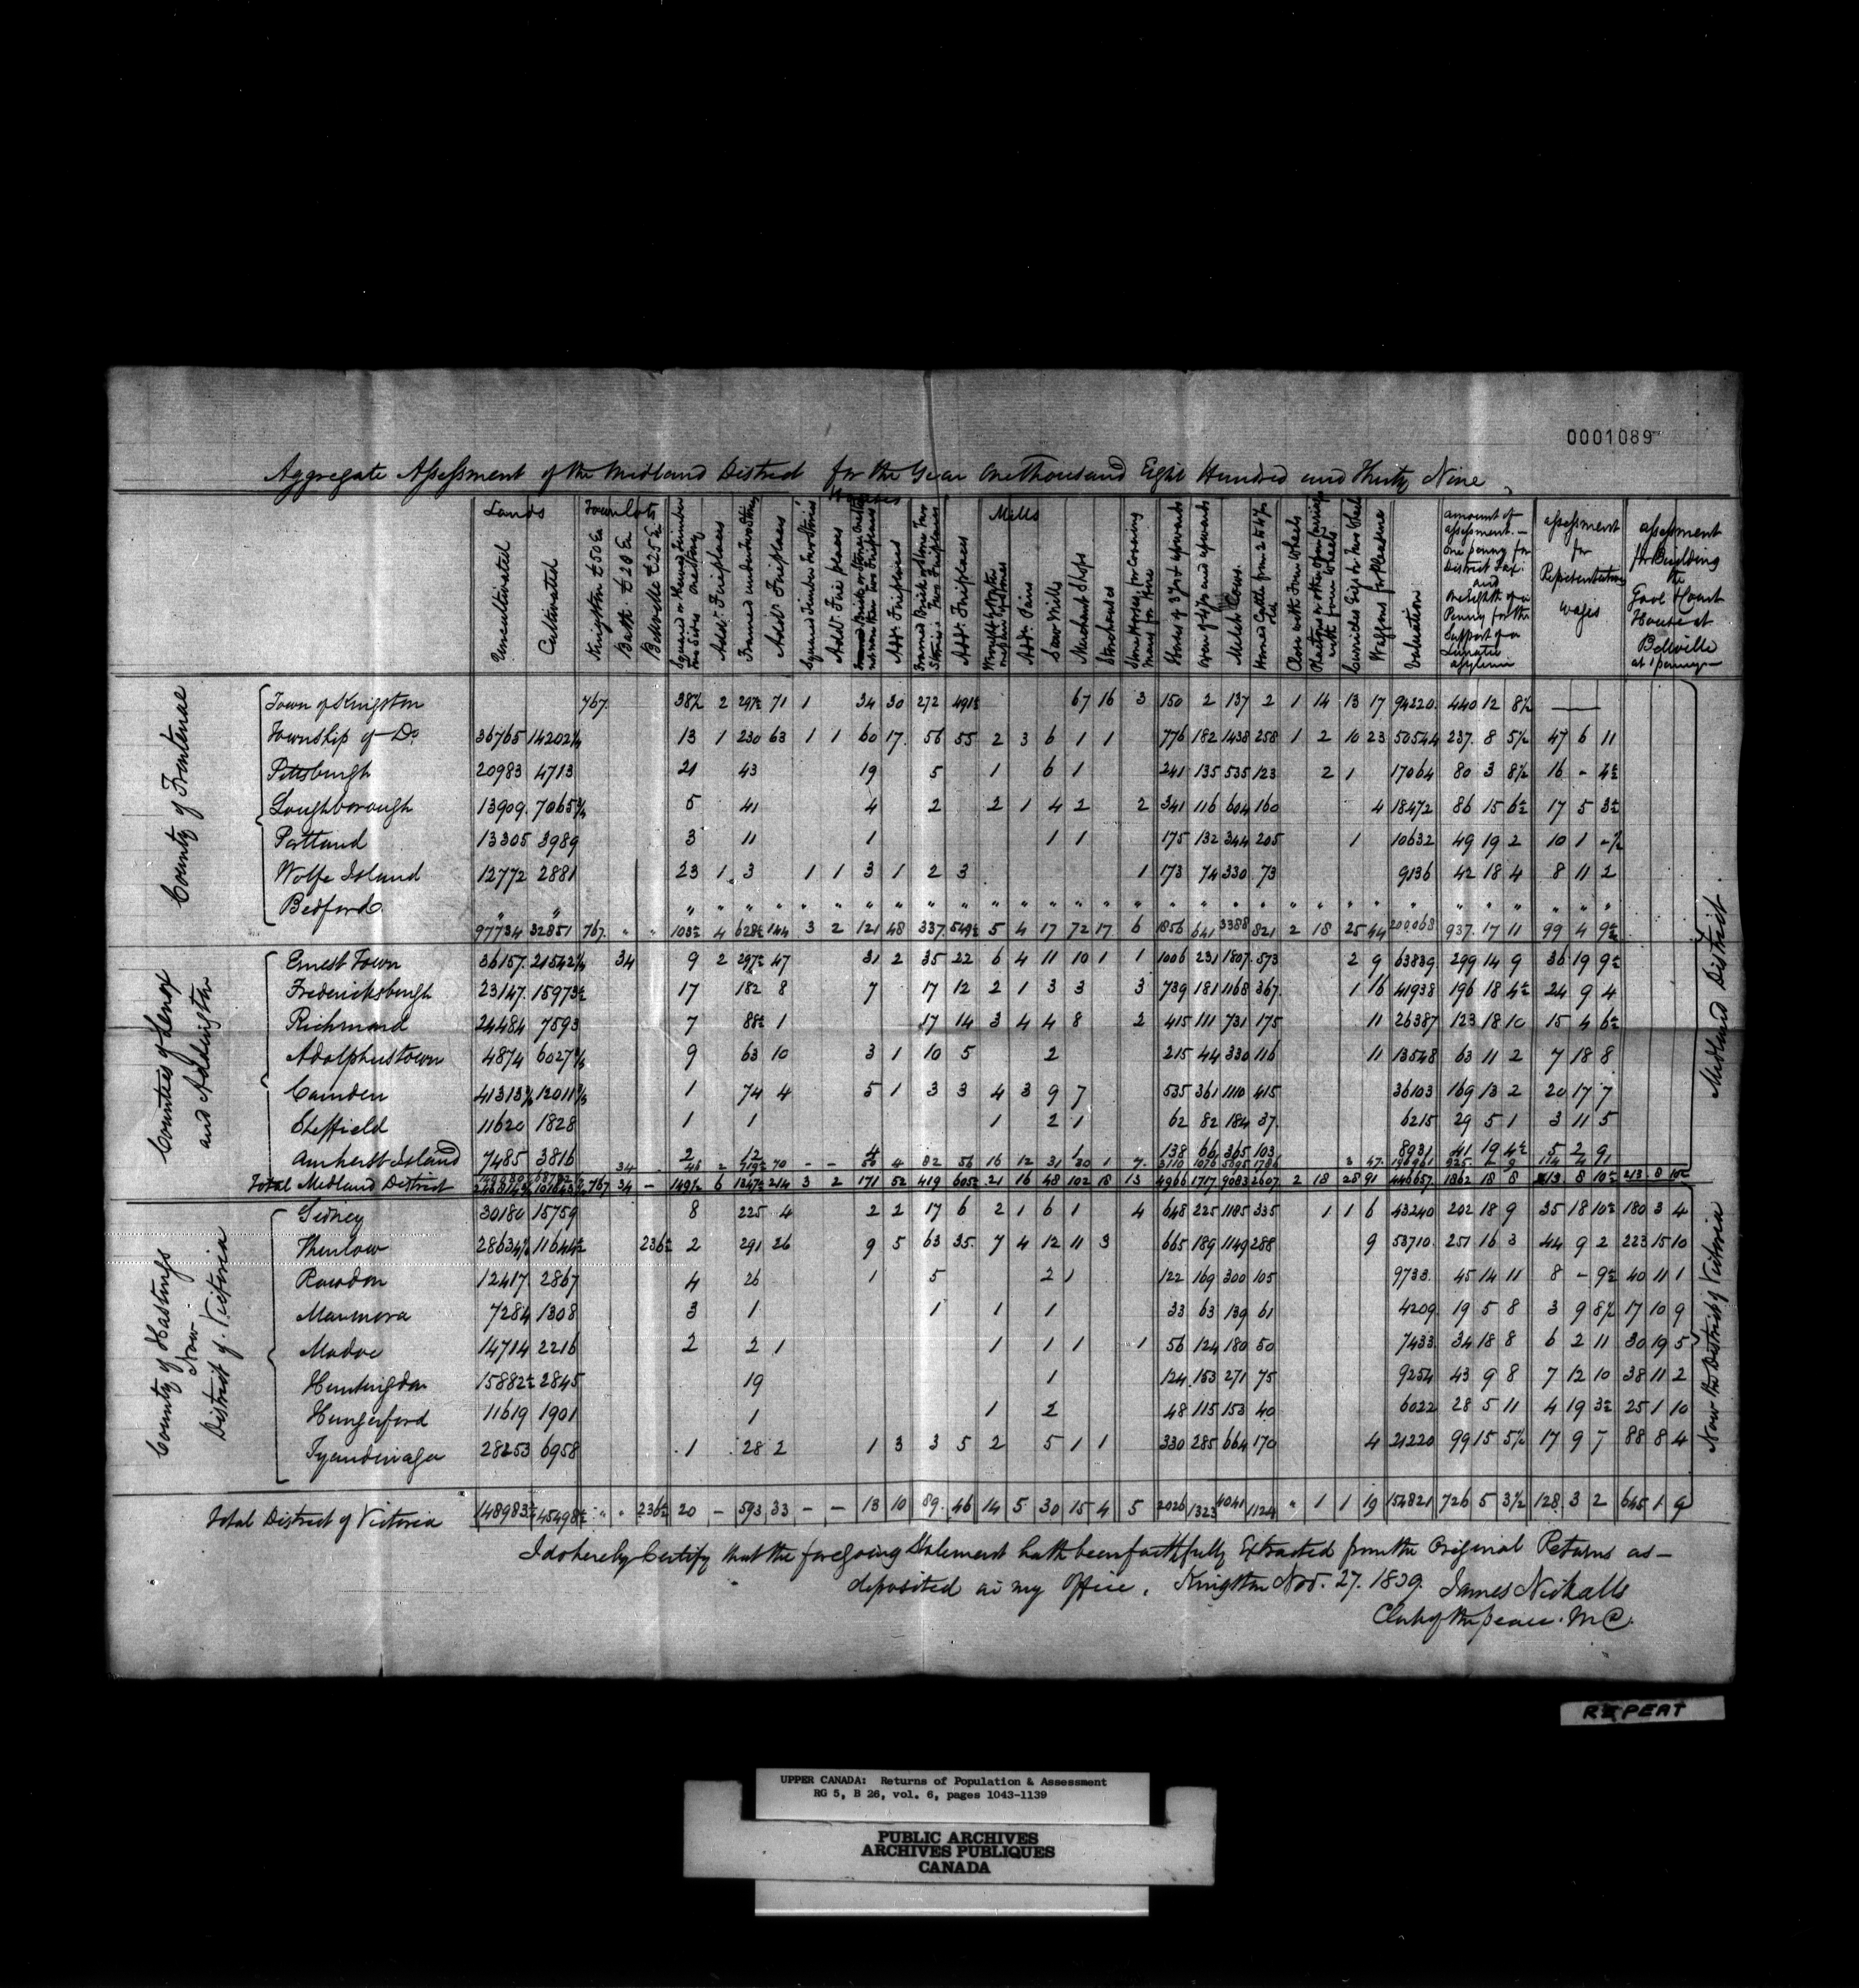 0001089
Aggregate Assessment of the Midland District for the Year One Thousand Eight Hundred and Thirty Nine
Lands
Town Lots
Houses
Mills
Uncultivated
Cultivated
Kingston £50 Ea
Bath £20 Ea
Belleville £25 Ea
Squared or Hewed Timber one Story
Addl. Fireplaces
Framed under two Story
Addl. Fireplaces
Squared Timber Two Stories
Addl. Fire places
not more than Two Fireplaces
Addl. Fireplaces
Framed Brick or Stone Two Stories Two Fireplaces
Addl. Fireplaces
Addl. Pairs
Saw Mills
Merchant Shops
Storehouses
Horses of 3 yrs & upwards
Oxen of 4 yrs and upwards
Milch Cows
Horned Cattle from 2 to 4 yrs
Close with Four Wheels
Curricles Gigs or Two Wheels
Waggons for Pleasure
Valuation
Amount of assessment. — One penny for District Tax. and One Eighth of a Penny for the Support of a Lunatic Asylum
Assessment for Representatives Wages
Assessment for Building the Gaol & Court House at Belleville at 1 penny —
County of Frontenac
Town of Kingston 767 38½ 2 297½ 71 1 34 30 272 491½ 67 16 3 150 2 137 2 1 14 13 17 94220 440 12 8½ —
Township of Do. 36765 14202¼ 13 1 230 63 1 1 60 17 56 55 2 3 6 1 1 776 182 1438 258 1 2 10 23 50544 237 8 5½ 47 6 11
Pittsburgh 20983 4713 21 43 19 5 1 6 1 241 135 535 123 2 1 17064 80 3 8½ 16 - 4½
Loughborough 13909 7065¾ 5 41 4 2 2 1 4 2 2 341 116 604 160 4 18472 86 15 6½ 17 5 3½
Portland 13305 3989 3 11 1 1 1 175 132 344 205 1 10632 49 19 2 10 1 -½
Wolfe Island 12772 2881 23 1 3 1 1 3 1 2 3 1 173 74 330 73 9136 42 18 4 8 11 2
Bedford
97734 32851 767 " " 103½ 4 628½ 144 3 2 121 48 337 549½ 5 4 17 72 17 6 1856 641 3388 821 2 18 25 44 200068 937 17 11 99 4 9½
Counties of Lenox and Addington
Ernest Town 36157 21542¼ 34 9 2 297½ 47 31 2 35 22 6 4 11 10 1 1 1006 231 1807 573 2 9 63839 299 14 9 36 19 9½
Fredericksburgh 23147 15973½ 17 182 8 7 17 12 2 1 3 3 3 739 181 1168 367 1 16 41938 196 18 4½ 24 9 4
Richmond 24484 7593 7 88½ 1 17 14 3 4 4 8 2 415 111 731 175 11 26387 123 18 10 15 4 6½
Adolphustown 4874 6027¾ 9 63 10 3 1 10 5 2 215 44 330 116 11 13548 63 11 2 7 18 8
Camden 41313½ 12011¾ 1 74 4 5 1 3 3 4 3 9 7 535 361 1110 415 36103 169 13 2 20 17 7
Sheffield 11620 1828 1 1 1 2 1 62 82 184 37 6215 29 5 1 3 11 5
Amherst Island 7485 3816 2 12 4 1 138 66 365 103 8931 41 19 4½ 5 2 9
Total Midland District 767 34 — 149½ 6 1347½ 214 3 2 171 52 419 605½ 21 16 48 102 18 13 4966 1717 9083 2607 2 18 28 91 446657 1862 18 8 213 8 10½ 213 8 10½
County of Hastings Now District of Victoria
Sidney 30180 15759 8 225 4 2 2 17 6 2 1 6 1 4 648 225 1185 335 1 1 6 43240 202 18 9 35 18 10½ 180 3 4
Thurlow 28634½ 11644½ 236½ 2 291 26 9 5 63 35 7 4 12 11 3 665 189 1149 288 9 53710 251 16 3 44 9 2 223 15 10
Rawdon 12417 2867 4 26 1 5 2 1 122 169 300 105 9733 45 14 11 8 - 9½ 40 11 1
Marmora 7284 1308 3 1 1 1 1 33 63 139 61 4209 19 5 8 3 9 8½ 17 10 9
Madoc 14714 2216 2 2 1 1 1 1 1 56 124 180 50 7433 34 18 8 6 2 11 30 19 5
Huntingdon 15882½ 2845 19 1 124 153 271 75 9254 43 9 8 7 12 10 38 11 2
Hungerford 11619 1901 1 1 2 48 115 153 40 6022 28 5 11 4 19 3½ 25 1 10
Tyendinaga 28253 6958 1 28 2 1 3 3 5 2 5 1 1 330 285 664 170 4 21220 99 15 5½ 17 9 7 88 8 4
Total District of Victoria 148983½ 45498½ " " 236½ 20 — 593 33 — — 13 10 89 46 14 5 30 15 4 5 2026 1323 4041 1124 " 1 1 19 154821 726 5 3½ 128 3 2 645 1 9
Midland District.
Now the District of Victoria
I do hereby Certify that the foregoing Statement hath been faithfully Extracted from the Original Returns as —
deposited in my Office. Kingston Nov. 27. 1839. James Nickalls
Clerk of the peace. M D.
REPEAT
UPPER CANADA: Returns of Population & Assessment
RG 5, B 26, vol. 6, pages 1043-1139
PUBLIC ARCHIVES
ARCHIVES PUBLIQUES
CANADA